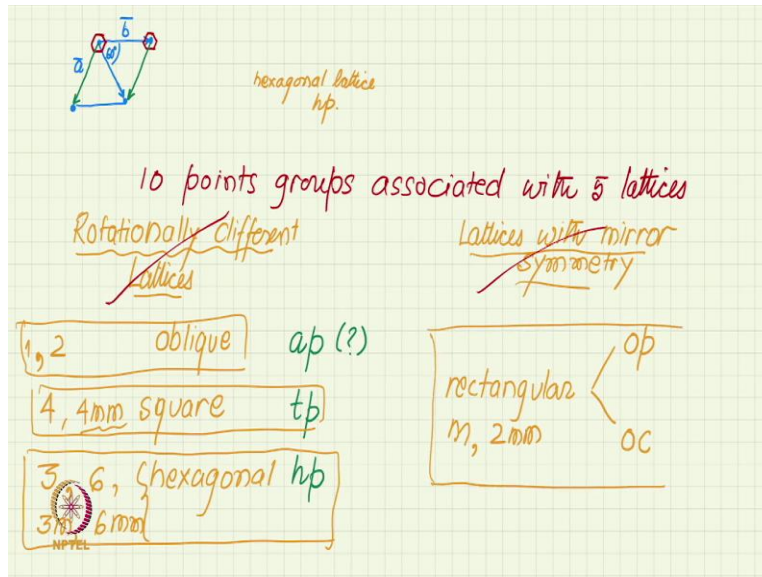 b
a
60°
hexagonal lattice
hp.
10 points groups associated with 5 lattices
Rotationally different
Lattices
Lattices with mirror
symmetry
1, 2 oblique ap (?)
4, 4mm square tp
3, 6, hexagonal hp
3m, 6mm
NPTEL
op
rectangular
m, 2mm
oc